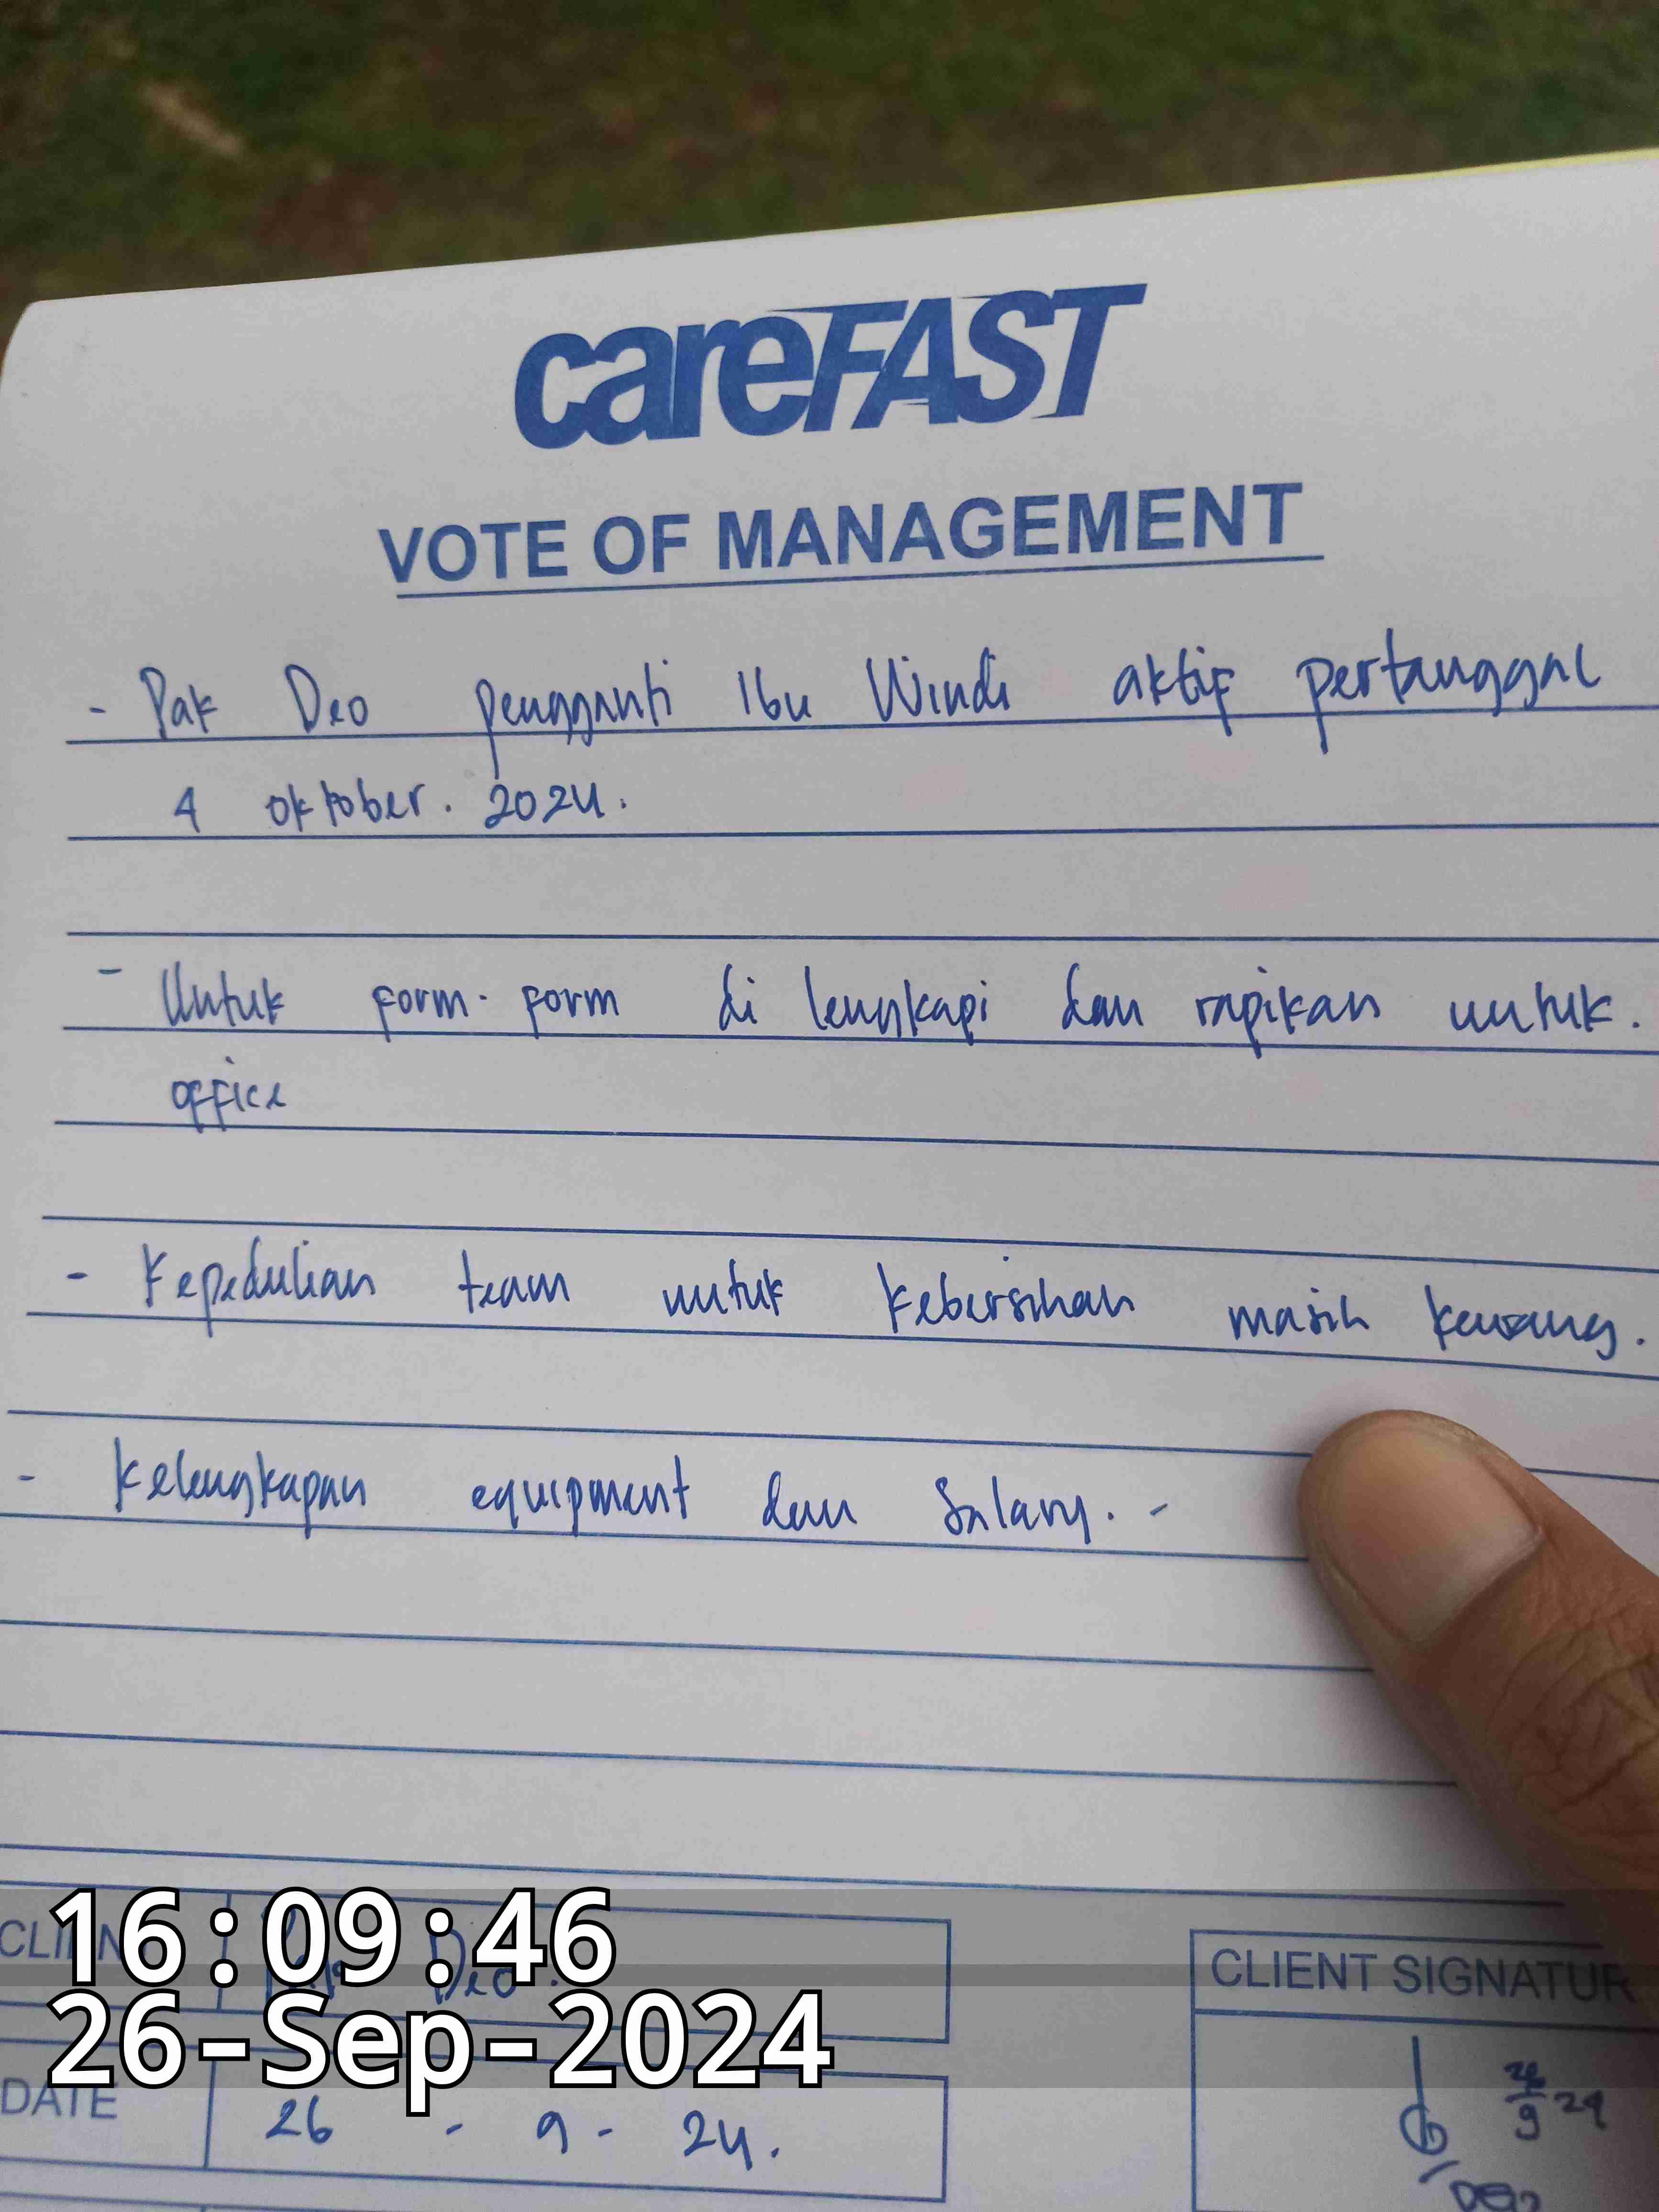 careFAST
VOTE OF MANAGEMENT
- Pak Deo pengganti Ibu Windi aktif pertanggal
4 oktober. 2024.
- Untuk form-form di lengkapi dan rapikan untuk.
office
- Kepedulian team untuk kebersihan masih kurang.
- Kelengkapan equipment dan Salary. -
16:09:46
26-Sep-2024
CLIENT Pak Deo.
CLIENT SIGNATUR
DATE 26 - 9 - 24.
26/9 24
Deo